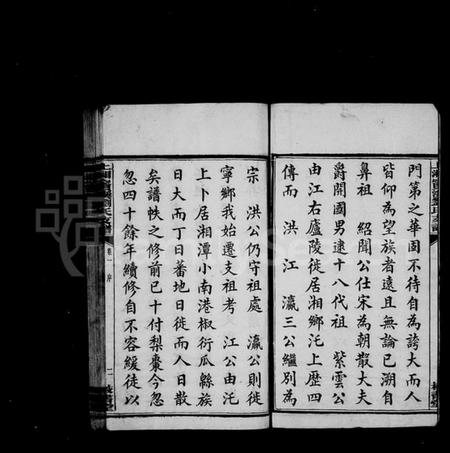 門第之華固不待自為誇大而人
皆仰為望族者遠且無論已溯自
鼻祖 紹聞公仕宋為朝散大夫
爵開國男逮十八代祖 紫雲公
由江右廬陵徙居湘鄉沱上歷四
傳而 洪 江 瀛三公繼別為
宗 洪公仍守祖處 瀛公則徙
寧鄉我始遷支祖考 江公由沱
上卜居湘潭小南港椒衍瓜縣族
日大而丁日蕃地日徙而人日散
矣譜帙之修前已十付梨棗今忽
忽四十餘年續修自不容緩徒以
卷一 序